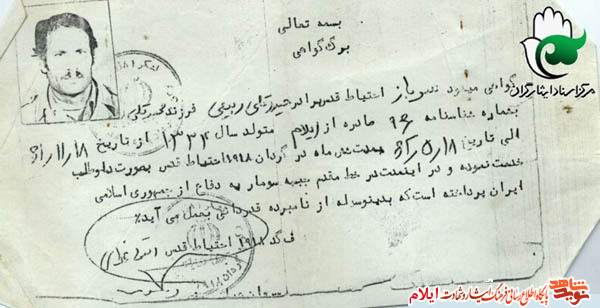 بسمه تعالی
برگ گواهی
گواهی میشود سرباز احتیاط قدس برادر حیدرعلی ربیعی فرزند محمدعلی
بشماره شناسنامه ۹۶ صادره از ایلام متولد سال ۱۳۳۴ از تاریخ
الی تاریخ بمدت شش ماه در گردان ۹۱۸ احتیاط قدس بصورت داوطلب
خدمت نموده و در اینمدت در خط مقدم جبهه سومار به دفاع از جمهوری اسلامی
ایران پرداخته است که بدینوسیله از نامبرده قدردانی بعمل می آید٪
ف گد ۹۱۸ احتیاط قدس
مرکز اسناد ایثارگران
نوید شاهد
پایگاه اطلاع رسانی فرهنگ ایثار و شهادت ایلام